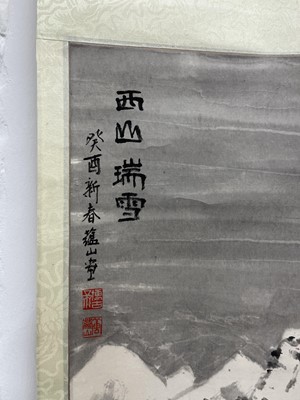 西山瑞雪
癸酉新春瑞山堂